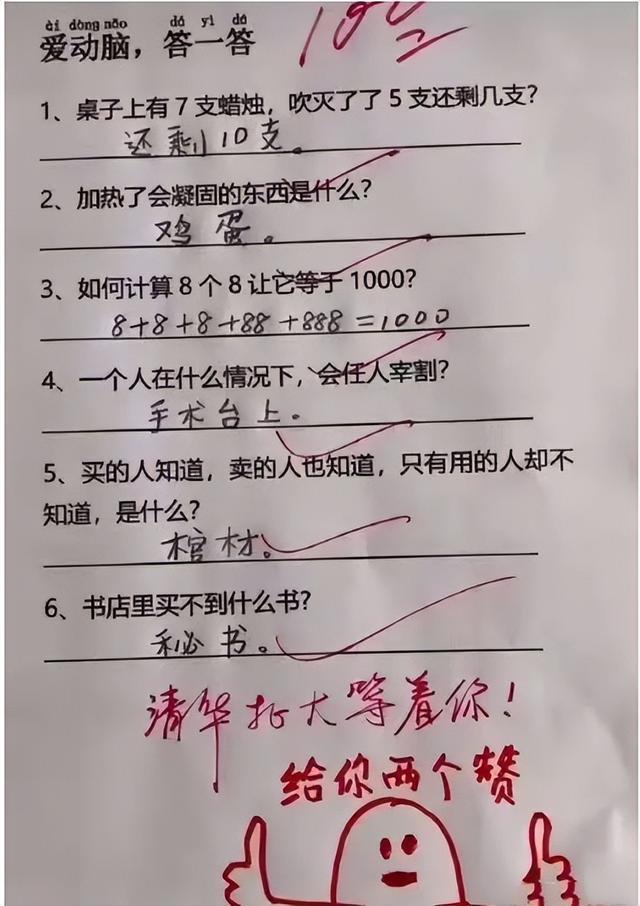 ài dòng nǎo dá yì dá
爱动脑，答一答
100
1、桌子上有7支蜡烛，吹灭了了5支还剩几支？
还剩10支。
2、加热了会凝固的东西是什么？
鸡蛋。
3、如何计算8个8让它等于1000？
8+8+8+88+888=1000
4、一个人在什么情况下，会任人宰割？
手术台上。
5、买的人知道，卖的人也知道，只有用的人却不
知道，是什么？
棺材。
6、书店里买不到什么书？
秘书。
清华北大等着你！
给你两个赞